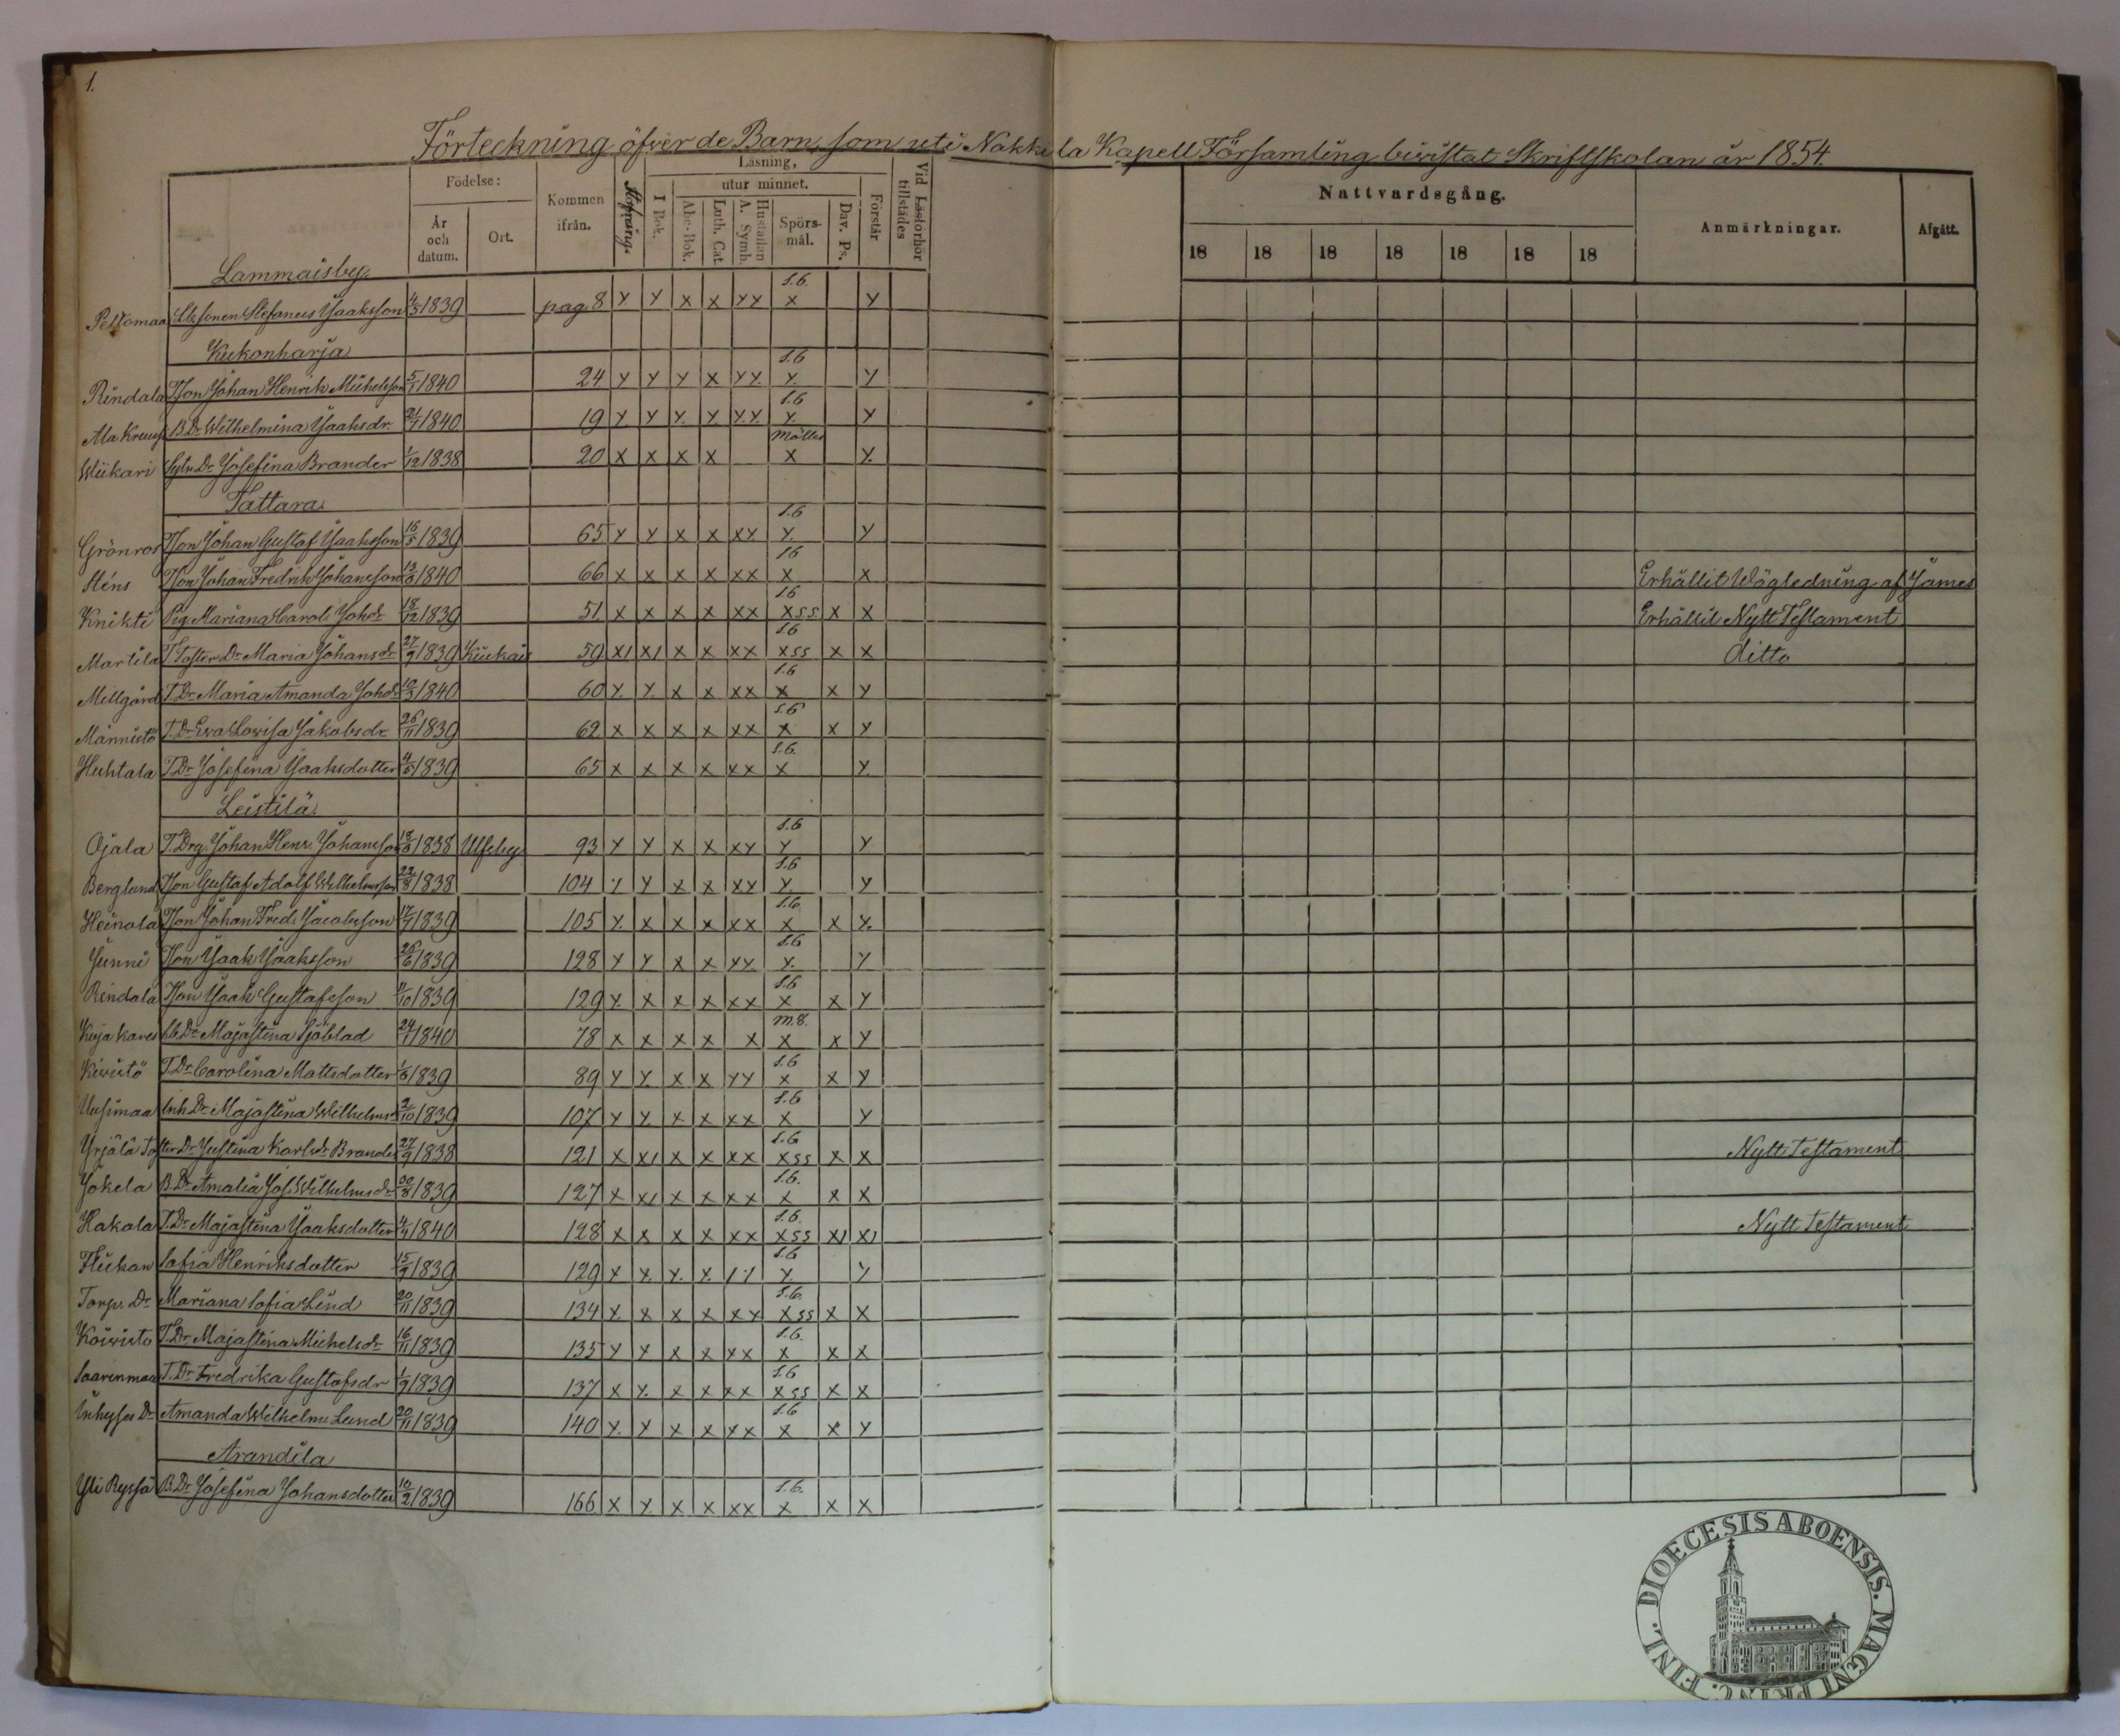 1.
Förteckning öfver de Barn, som uti Nakkila Kapell Församling bivistat Skriftskolan år 1854.
Födelse: Kommen ifrån. Stafning. Läsning, Vid Läsförhör tillstädes Nattvardsgång. Anmärkningar. Afgått.
År och datum. Ort. I Bok. utur minnet. Förstår
Abc-Bok. Luth. Cat. Hustaflan A. Symb. Spörs-mål. Dav. Ps.
18 18 18 18 18 18 18
Lammaisby.
Peltomaa Stefanus Isaaksson 4/5 1839 pag. 8 y y x x yx s.6. x y
Kukonharja
Rindala Tson Johan Henrik Michelsson 5/1 1840 24 y y y x yx s.6 y y
B.Dr Wilhelmina Isaaksdr. 21/1 1840 19 y y y. y. y.y. s.6 y. y
Wiikari Josefina Brander 1/12 1838 20 x x x x x y.
Tattara
Grönroos Tson Johan Gustaf Isaaksson 16/5 1839 65 y y x x xx s.6 y. y
Stens Tson Johan Fredrik Johansson 13/3 1840 66 x x x x xx s6 x x Erhållit Wägledning af James
Knikti Pig. Mariana Caroli Johdr 18/12 1839 51. x x x x xx s6 xss x x Erhållit Nytt Testament
Martila T. Foster Dr Maria Johansdr 27/9 1839 Kiukais 59 x1 x1 x x xx s.6 xss x x ditto
Millgård T.Dr Maria Amanda Johdr 10/3 1840 60 y. y. x x xx s.6 x x y
Männistö T.Dr Eva Lovisa Jakobsdr 26/11 1839 62 x x x x xx s.6 x x y
Huhtala T.Dr Josefina Isaaksdotter 4/5 1839 65 x x x x xx s.6. x y.
Leistilä
Ojala T.Drg. Johan Henr. Johansson 18/3 1838 Ulfsby 93 y y x x xy s.6 y y
Berglund Tson Gustaf Adolf Wilhelmsson 22/8 1838 104 y y x x xx s.6 y. y
Heinola Tson Johan Fred. Jacobsson 17/7 1839 105 y. x x x xx s.6 x x y.
Junni Tson Isaak Isaaksson 26/6 1839 128 y y x x yx s.6 y. y
Rindala Tson Isaak Gustafsson 11/10 1839 129 y. x x x xx s.6 x x y
Majastina Sjöblad 24/1 1840 78 x x x x x m.8. x x y
Kivistö T.Dr Carolina Mattsdotter 1/6 1839 89 y y. x x yy s.6 x x y
Uusimaa Inh. Dr Majastina Wilhelmsdr 2/10 1839 107 y y. x x xx s.6 x y
Yrjälä Foster Dr Justina Karlsdr Brander 27/9 1838 121 x x1 x x xx s.6 xss x x Nytt Testament
Jokela B.Dr Amalia Jos. Wilhelmsdr 30/8 1839 127 x x1 x x xx s.6. x x x
Hakala T.Dr Majastina Isaaksdotter 4/4 1840 128 x x x x xx s.6. xss x1 x1 Nytt Testament
Flickan Sofia Henriksdotter 15/9 1839 129 x x. y. x. s.6 y. y
Torp. Dr Mariana Sofia Lind 20/11 1839 134 x. x x x xx s.6. xss x x
Koivisto T.Dr Majastina Michelsdr 16/11 1839 135 y y x x xx s.6. x x x
Saarenmaa T.Dr Fredrika Gustafsdr 1/9 1839 137 x y. x x xx s.6 xss x x
Inhyses Dr Amanda Wilhelm. Lund 20/11 1839 140 y. y x x yx s.6 x x y
Arandila
Yli Ryssä B.Dr Josefina Johansdotter 10/2 1839 166 x y. x x xx s.6. x x x
DIOECESIS ABOENSIS. MAGNI PRINC. FINL.